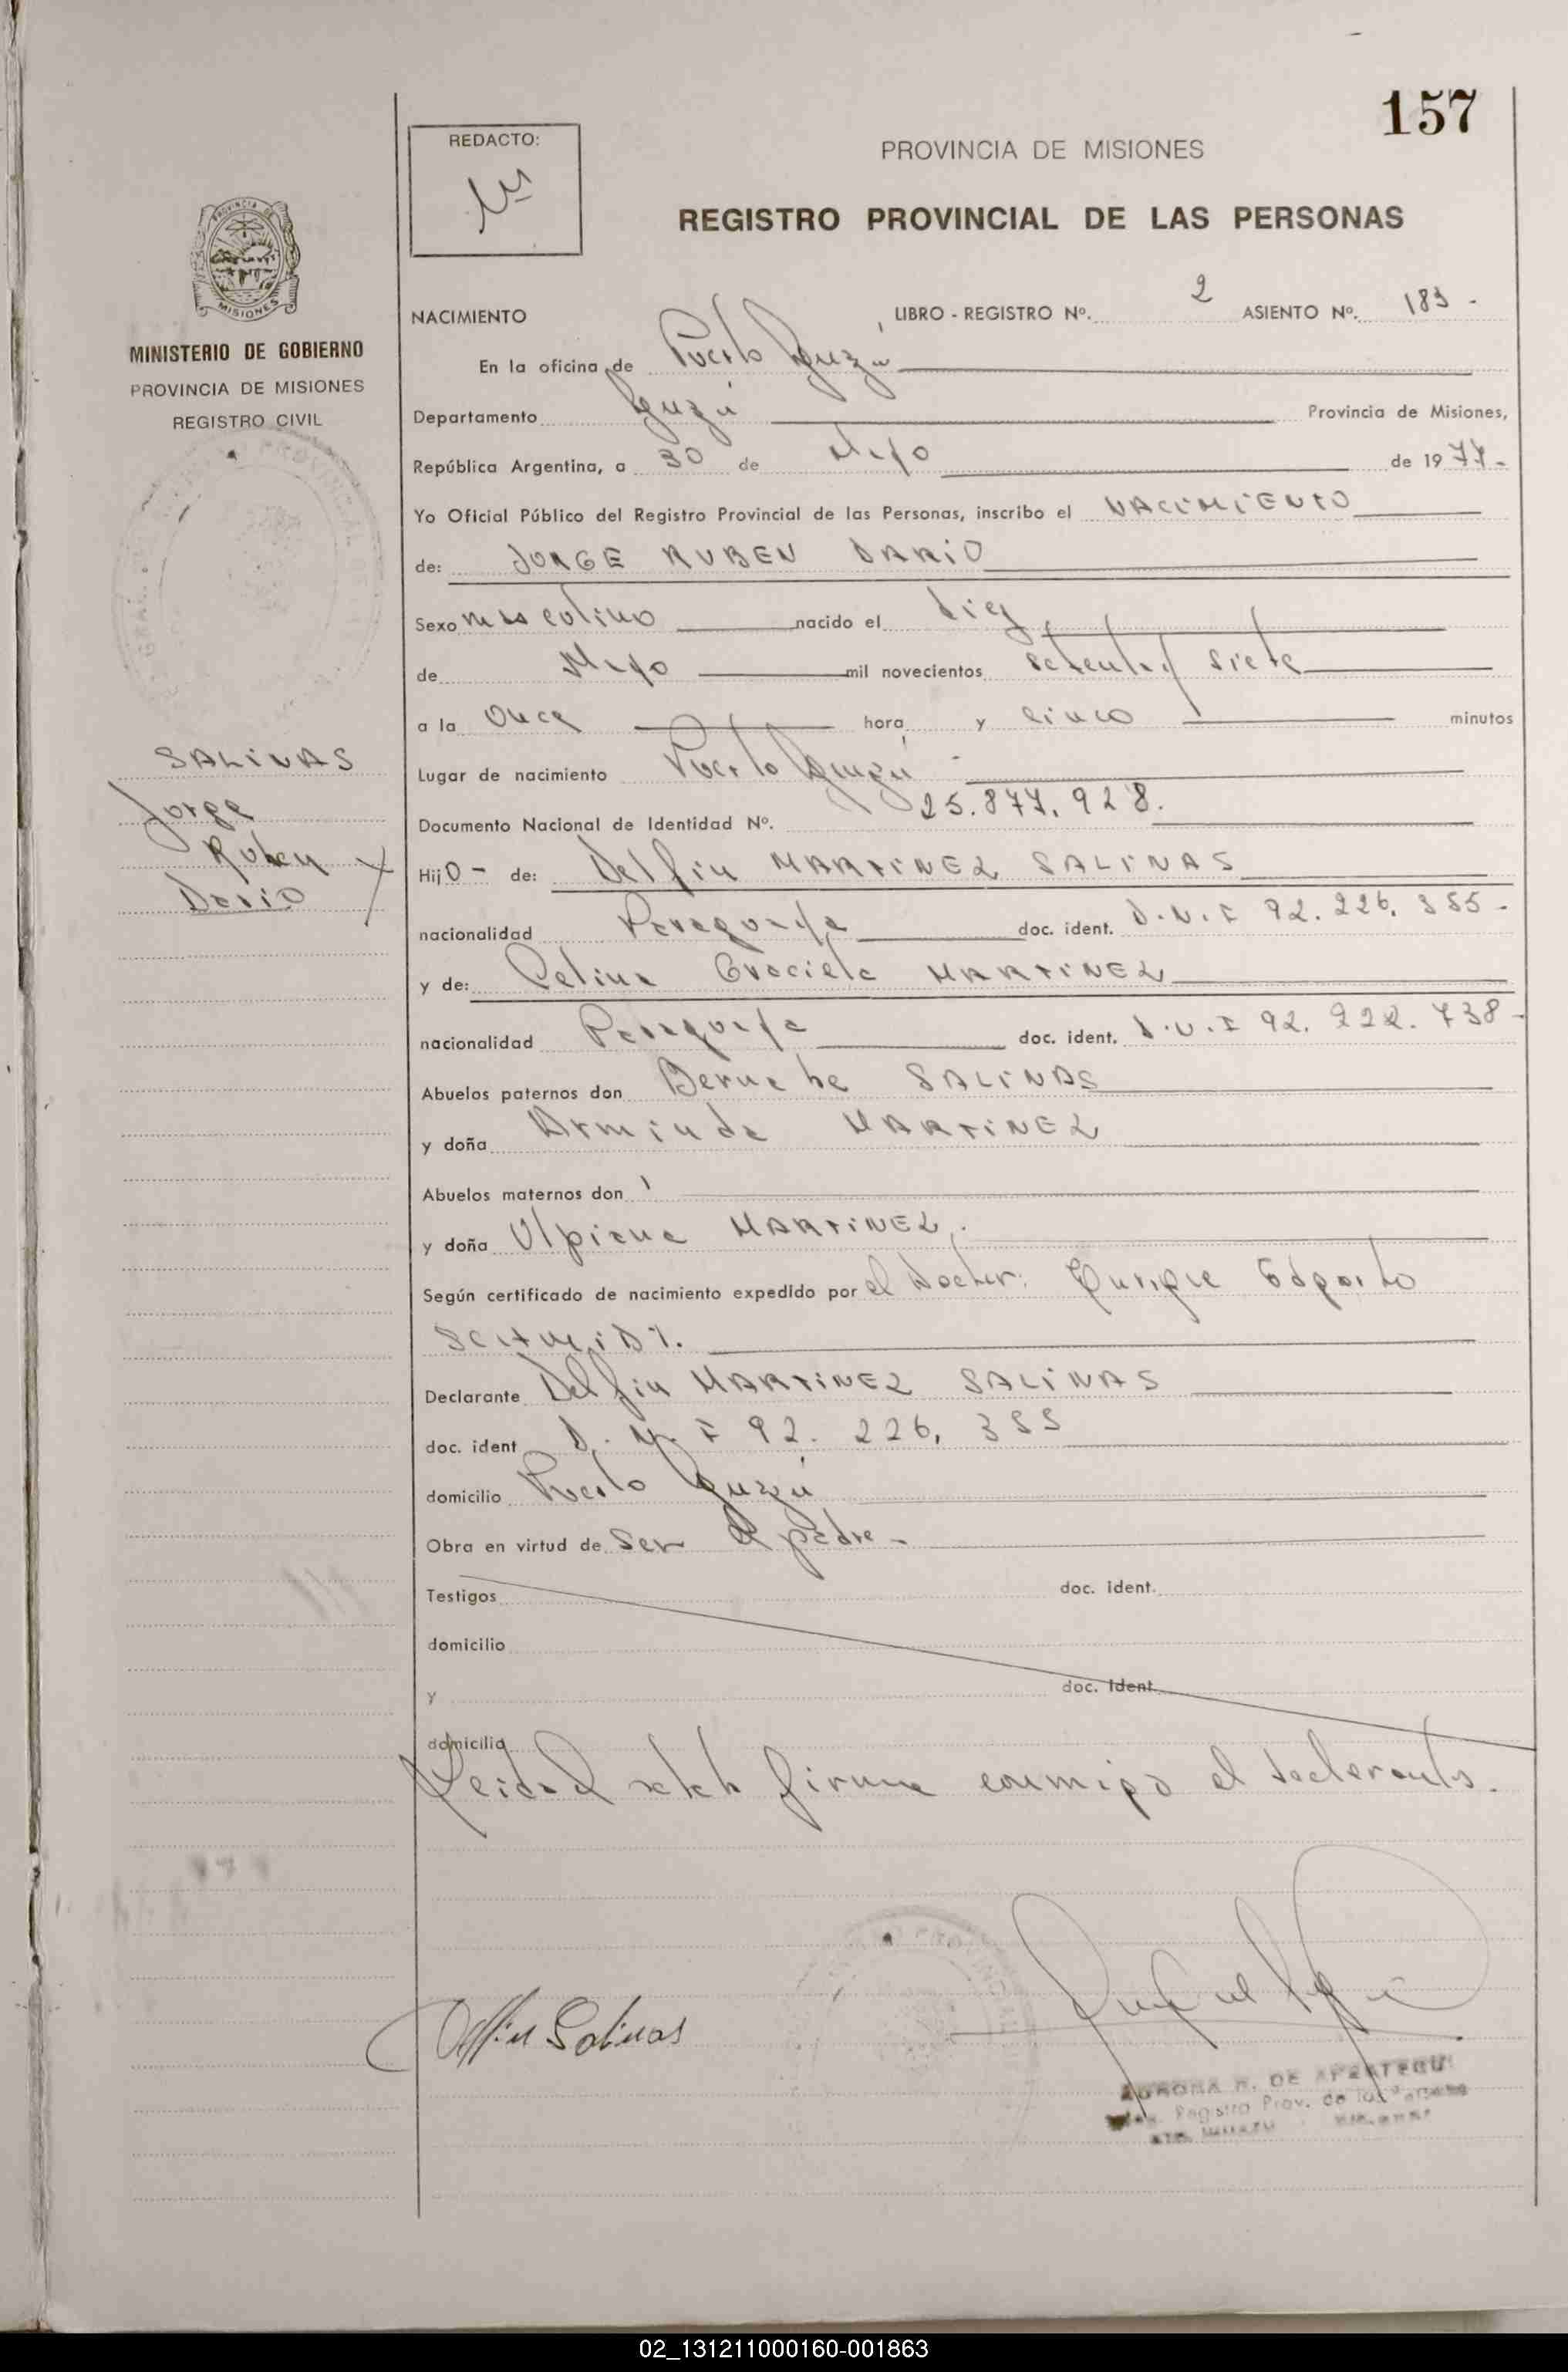 157
REDACTO:
PROVINCIA DE MISIONES
REGISTRO PROVINCIAL DE LAS PERSONAS
MISIONES
MINISTERIO DE GOBIERNO
PROVINCIA DE MISIONES
REGISTRO CIVIL
SALINAS
Jorge
Ruben
Dario
NACIMIENTO LIBRO - REGISTRO Nº. 2 ASIENTO Nº. 183 -
En la oficina de Puerto Iguazú
Departamento Iguazú Provincia de Misiones,
República Argentina, a 30 de Mayo de 1977-
Yo Oficial Público del Registro Provincial de las Personas, inscribo el NACIMIENTO
de: JORGE RUBEN DARIO
Sexo masculino nacido el diez
de Mayo mil novecientos setenta y siete
a la Once hora y cinco minutos
Lugar de nacimiento Puerto Iguazú -
Documento Nacional de Identidad Nº. 25.877.928.
Hijo - de: Delfin MARTINEZ SALINAS
nacionalidad Paraguaya doc. ident. D.N.I 92.226.355-
y de: Celina Graciela MARTINEZ
nacionalidad Paraguaya doc. ident. D.N.I 92.222.738-
Abuelos paternos don Bernabe SALINAS
y doña Arminda MARTINEZ
Abuelos maternos don
y doña Ulpiana MARTINEZ.
Según certificado de nacimiento expedido por el Doctor: Enrique Edgardo
SCHMIDT.
Declarante Delfin MARTINEZ SALINAS
doc. ident D.N.I 92.226.355
domicilio Puerto Iguazú
Obra en virtud de ser el padre -
Testigos doc. ident.
domicilio
y doc. ident
domicilio
Leida el acta firma conmigo el declarante.
Delfin Salinas
DE
Registro Prov. de las
02_131211000160-001863